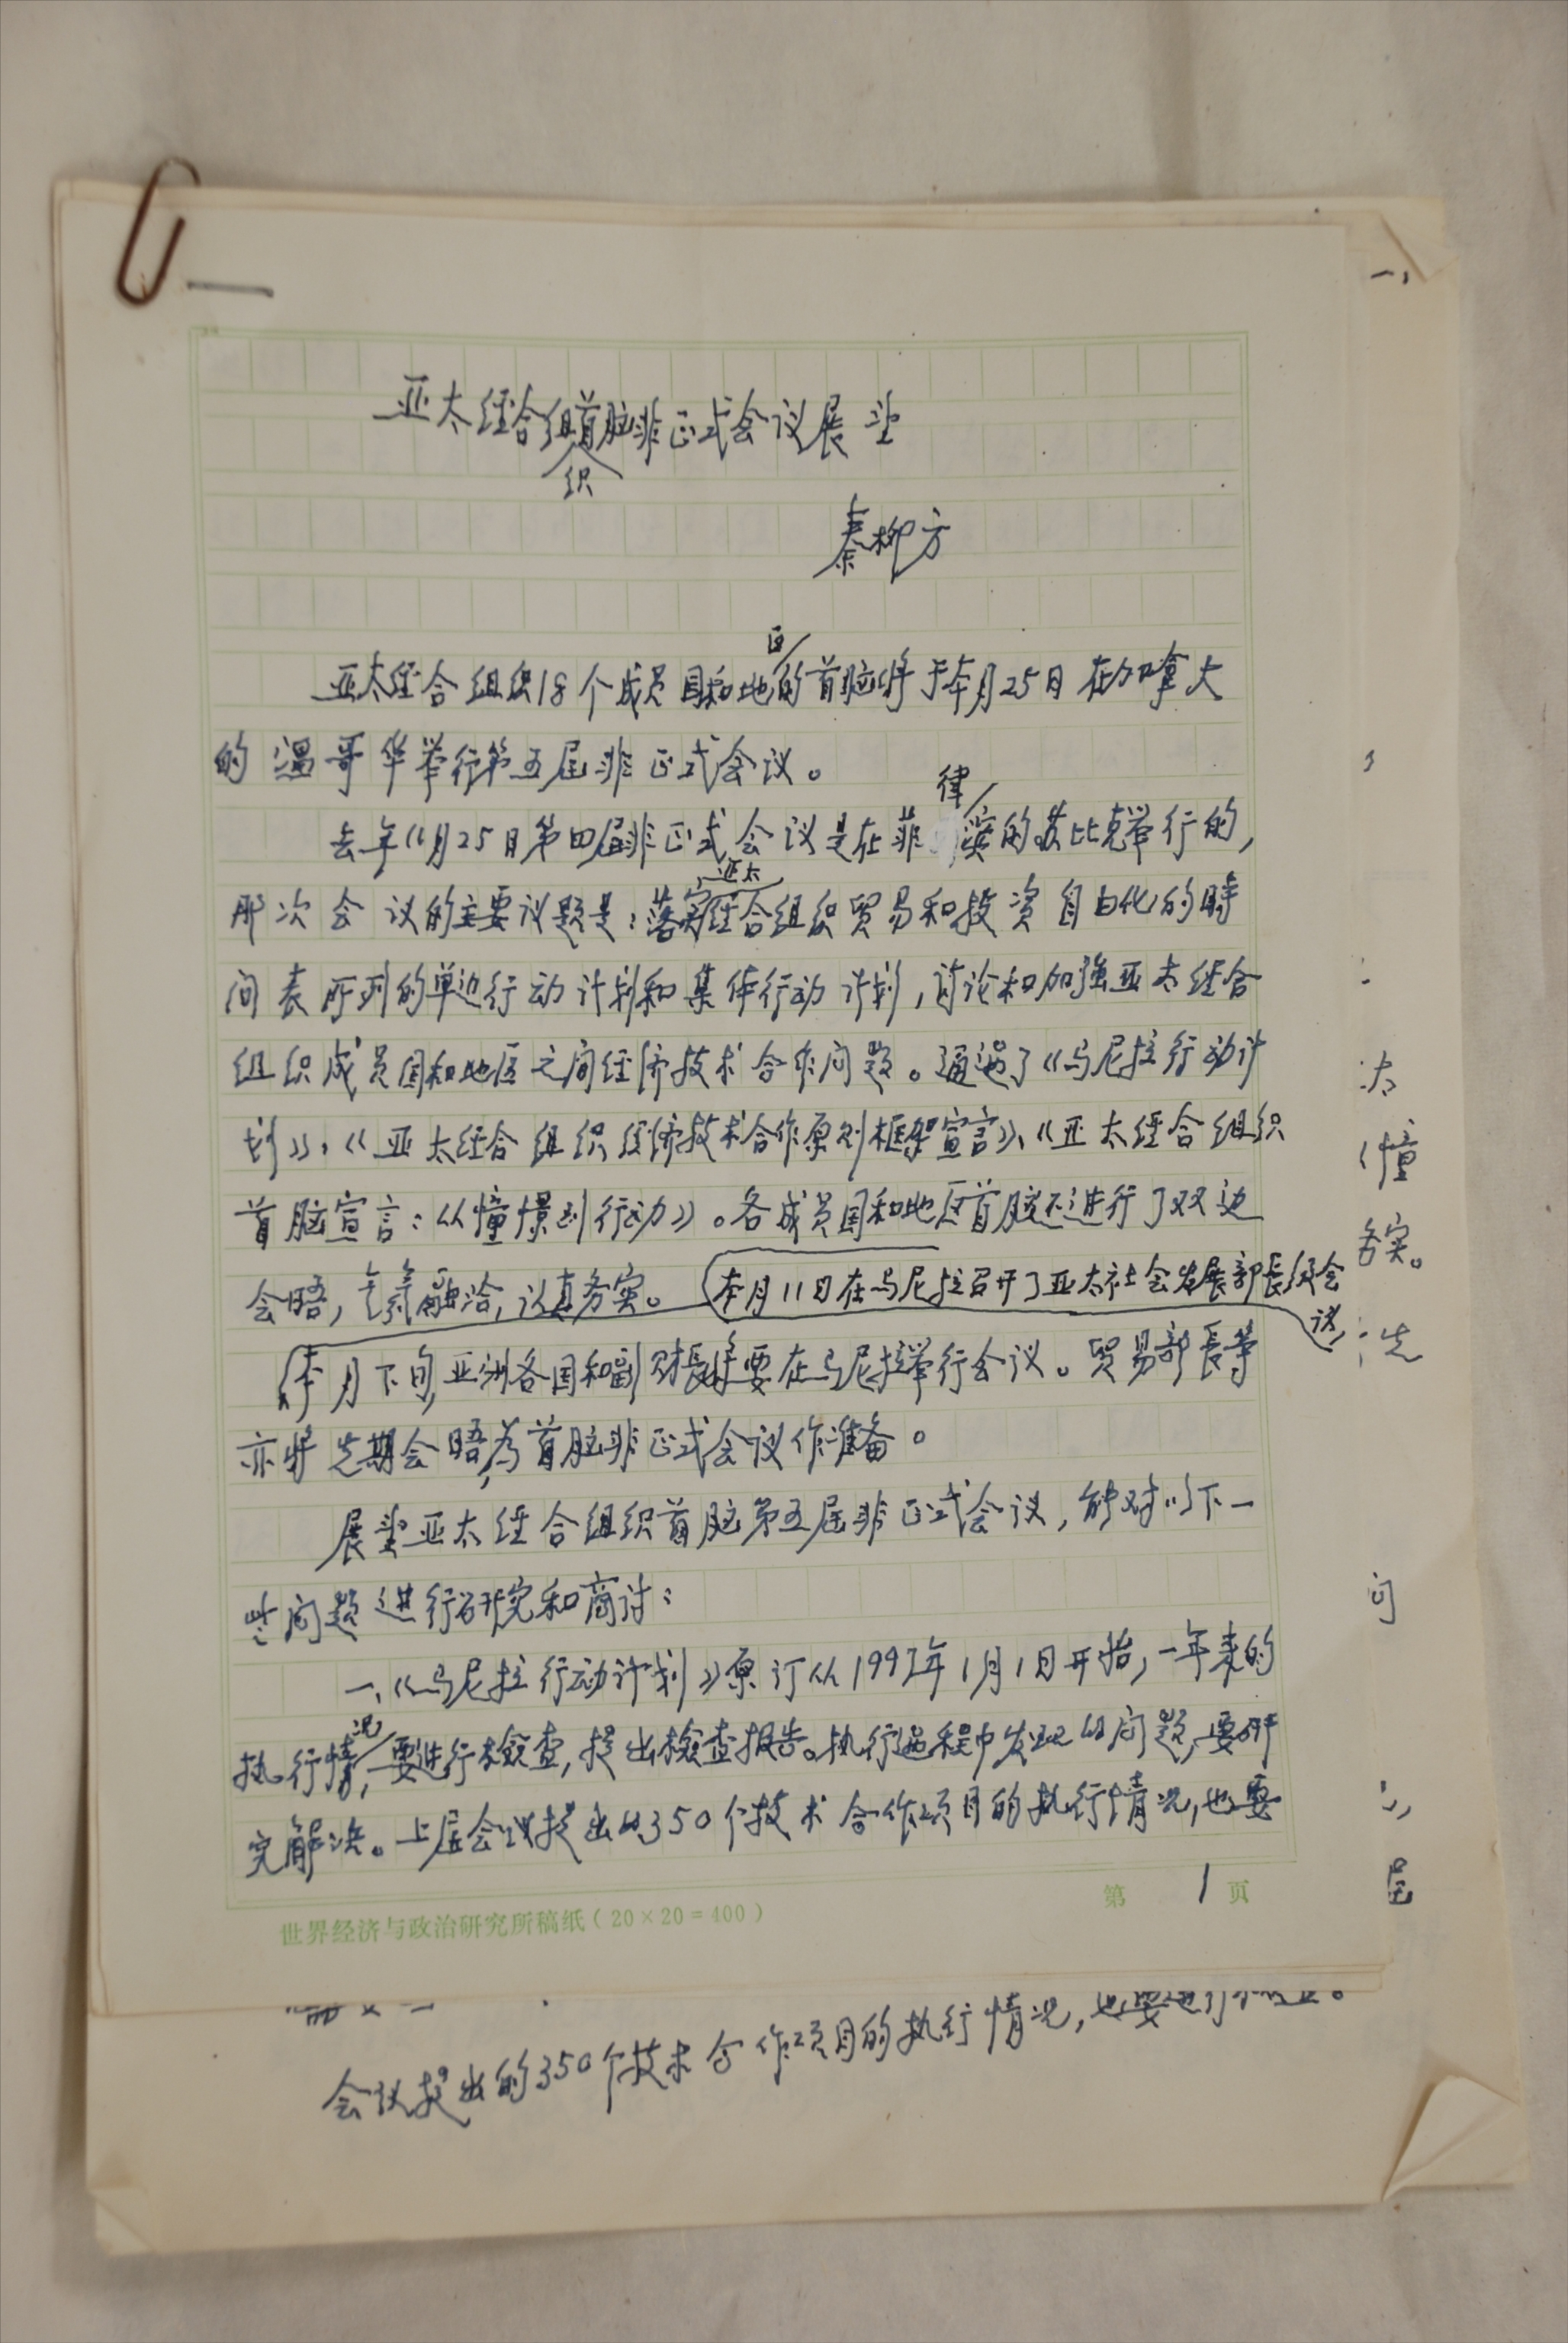 亚太经合组织首脑非正式会议展望
秦柳方
亚太经合组织18个成员国和地区的首脑将于本月25日在加拿大
的温哥华举行第五届非正式会议。
去年11月25日第四届非正式会议是在菲律宾的苏比克举行的,
那次会议的主要议题是:落实亚太经合组织贸易和投资自由化的時
间表所列的单边行动计划和集体行动计划,讨论和加强亚太经合
组织成员国和地区之间经济技术合作问题。通过了《马尼拉行动计
划》,《亚太经合组织经济技术合作原则框架宣言》、《亚太经合组织
首脑宣言:从憧憬到行动》。各成员国和地区首脑还进行了双边
会晤,气氛融洽,认真务实。本月11日在马尼拉召开了亚太社会发展部長级会
议,
本月下旬,亚洲各国和副财長将要在马尼拉举行会议。贸易部長等
亦将先期会晤,為首脑非正式会议作准备。
展望亚太经合组织首脑第五届非正式会议,能对以下一
些问题进行研究和商讨:
一、《马尼拉行动计划》原订从1997年1月1日开始,一年来的
执行情况,要进行检查,提出检查报告。执行过程中发现的问题,要研
究解决。上届会议提出的350个技术合作项目的执行情况,也要
第1页
世界经济与政治研究所稿纸(20×20=400)
会议提出的350个技术合作项目的执行情况,也要进行
一、
太
憧
务实。
先
问
届